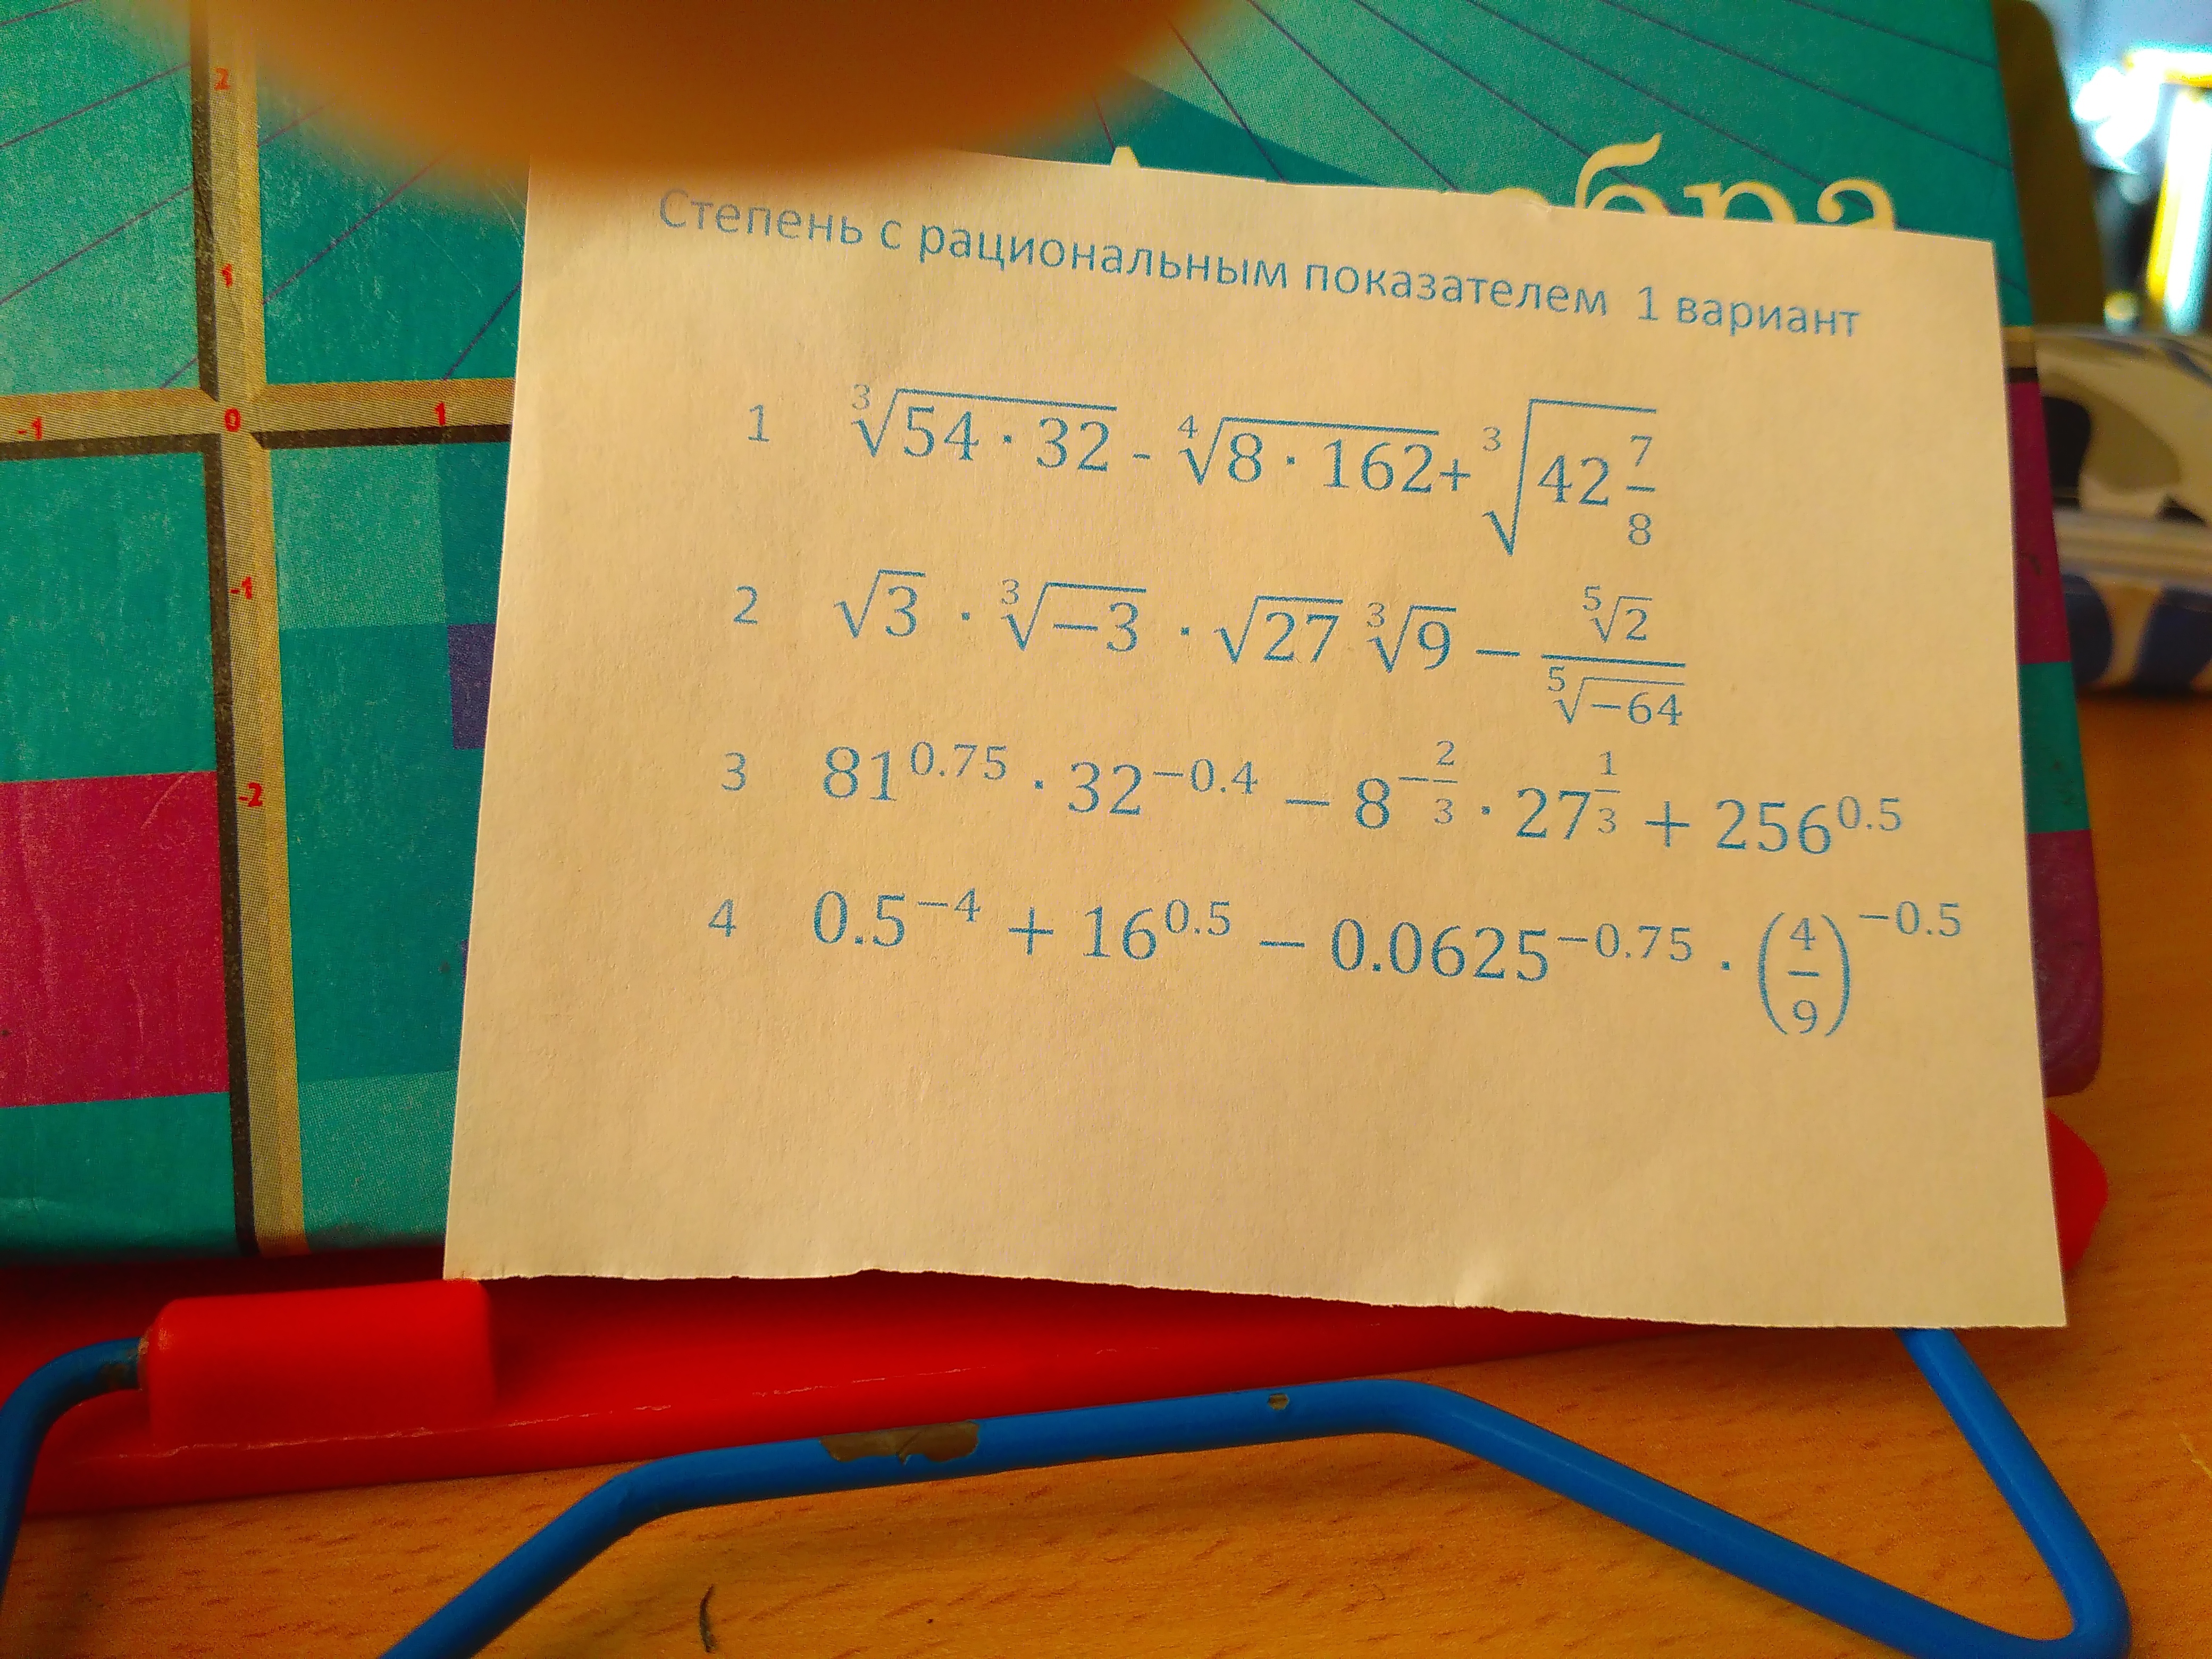 2
1
-1 0 1
-1
-2
Степень с рациональным показателем 1 вариант
1 ∛(54 · 32) - ∜(8 · 162)+ ∛(42 7/8)
2 √3 · ∛(−3) · √27 ∛9 − ⁵√2 / ⁵√(−64)
3 81^0.75 · 32^−0.4 − 8^(−2/3) · 27^(1/3) + 256^0.5
4 0.5^−4 + 16^0.5 − 0.0625^−0.75 · (4/9)^−0.5